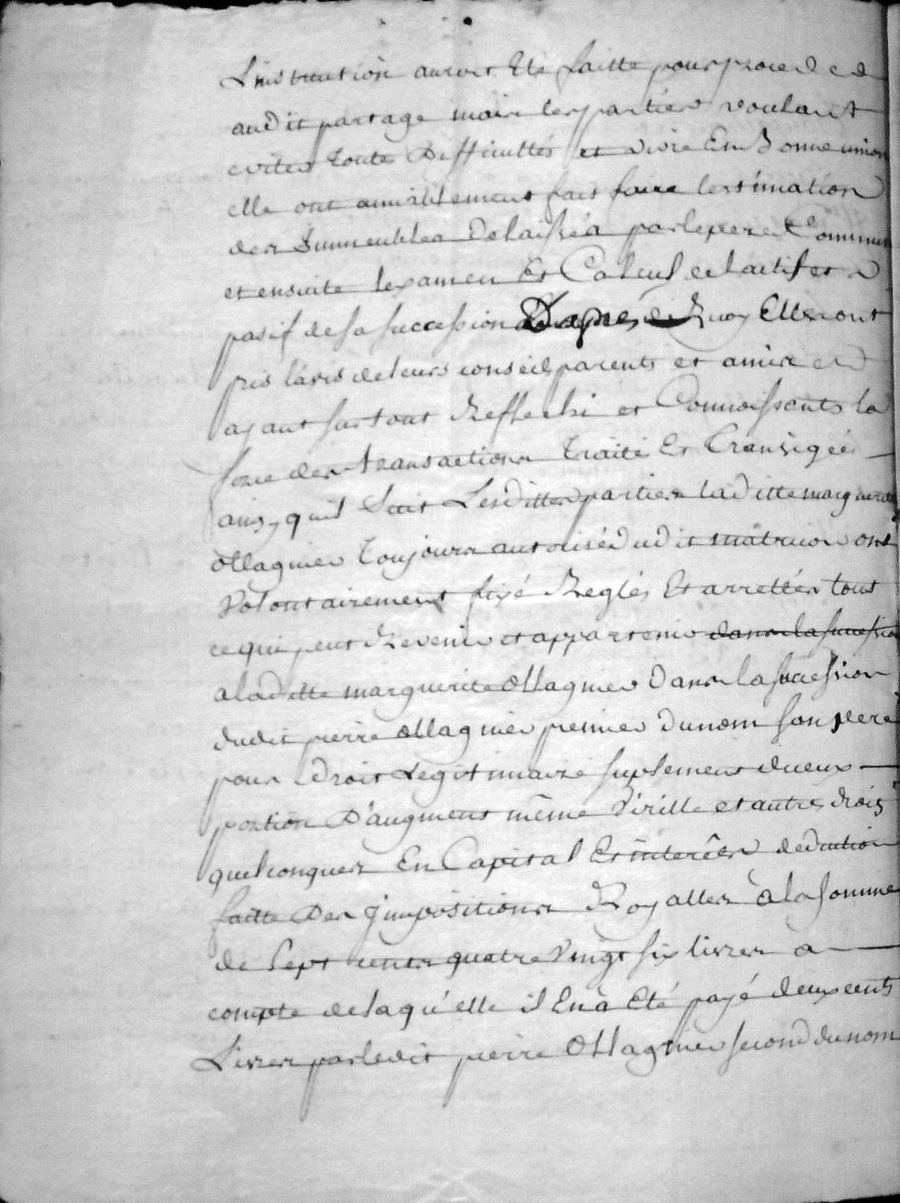 L'instruction auroit Eté faitte pour proceder
audit partage mais les parties voulant
eviter toute Difficultés et vivre En Bonne union
elle ont amiablement fait faire lestimation
des Immeubles Delaissés par lexpert Commun
et ensuite lexamen Et Calcul de lactif et
pasif de sa succession Dapres de Quoy Elles ont
pris lavis de leurs conseils parents et amis et
ayant sur tout Reflechi et Connoissants la
force des transactions traité Et transigée
ainsy quil suit Lesdittes parties laditte marguerite
Ollagnier Toujours autorisée dudit ont
Volontairement fixé Reglés Et arrettés tout
ce qui peut Revenir et appartenir dans la succession
a laditte marguerite Ollagnier Dans la succession
dudit pierre Ollagnier premier Du nom son pere
pour droit Legitimaire suplement diceux
portion D'augment même Virille et autres droits
quelconques En Capital Et interêts deduction
faitte Des jmpositions Royalles à la somme
de Sept cents quatre Vingt six livres a
compte de laqu'elle il En à Eté payé deux cents
Livres par ledit pierre Ollagnier second du nom